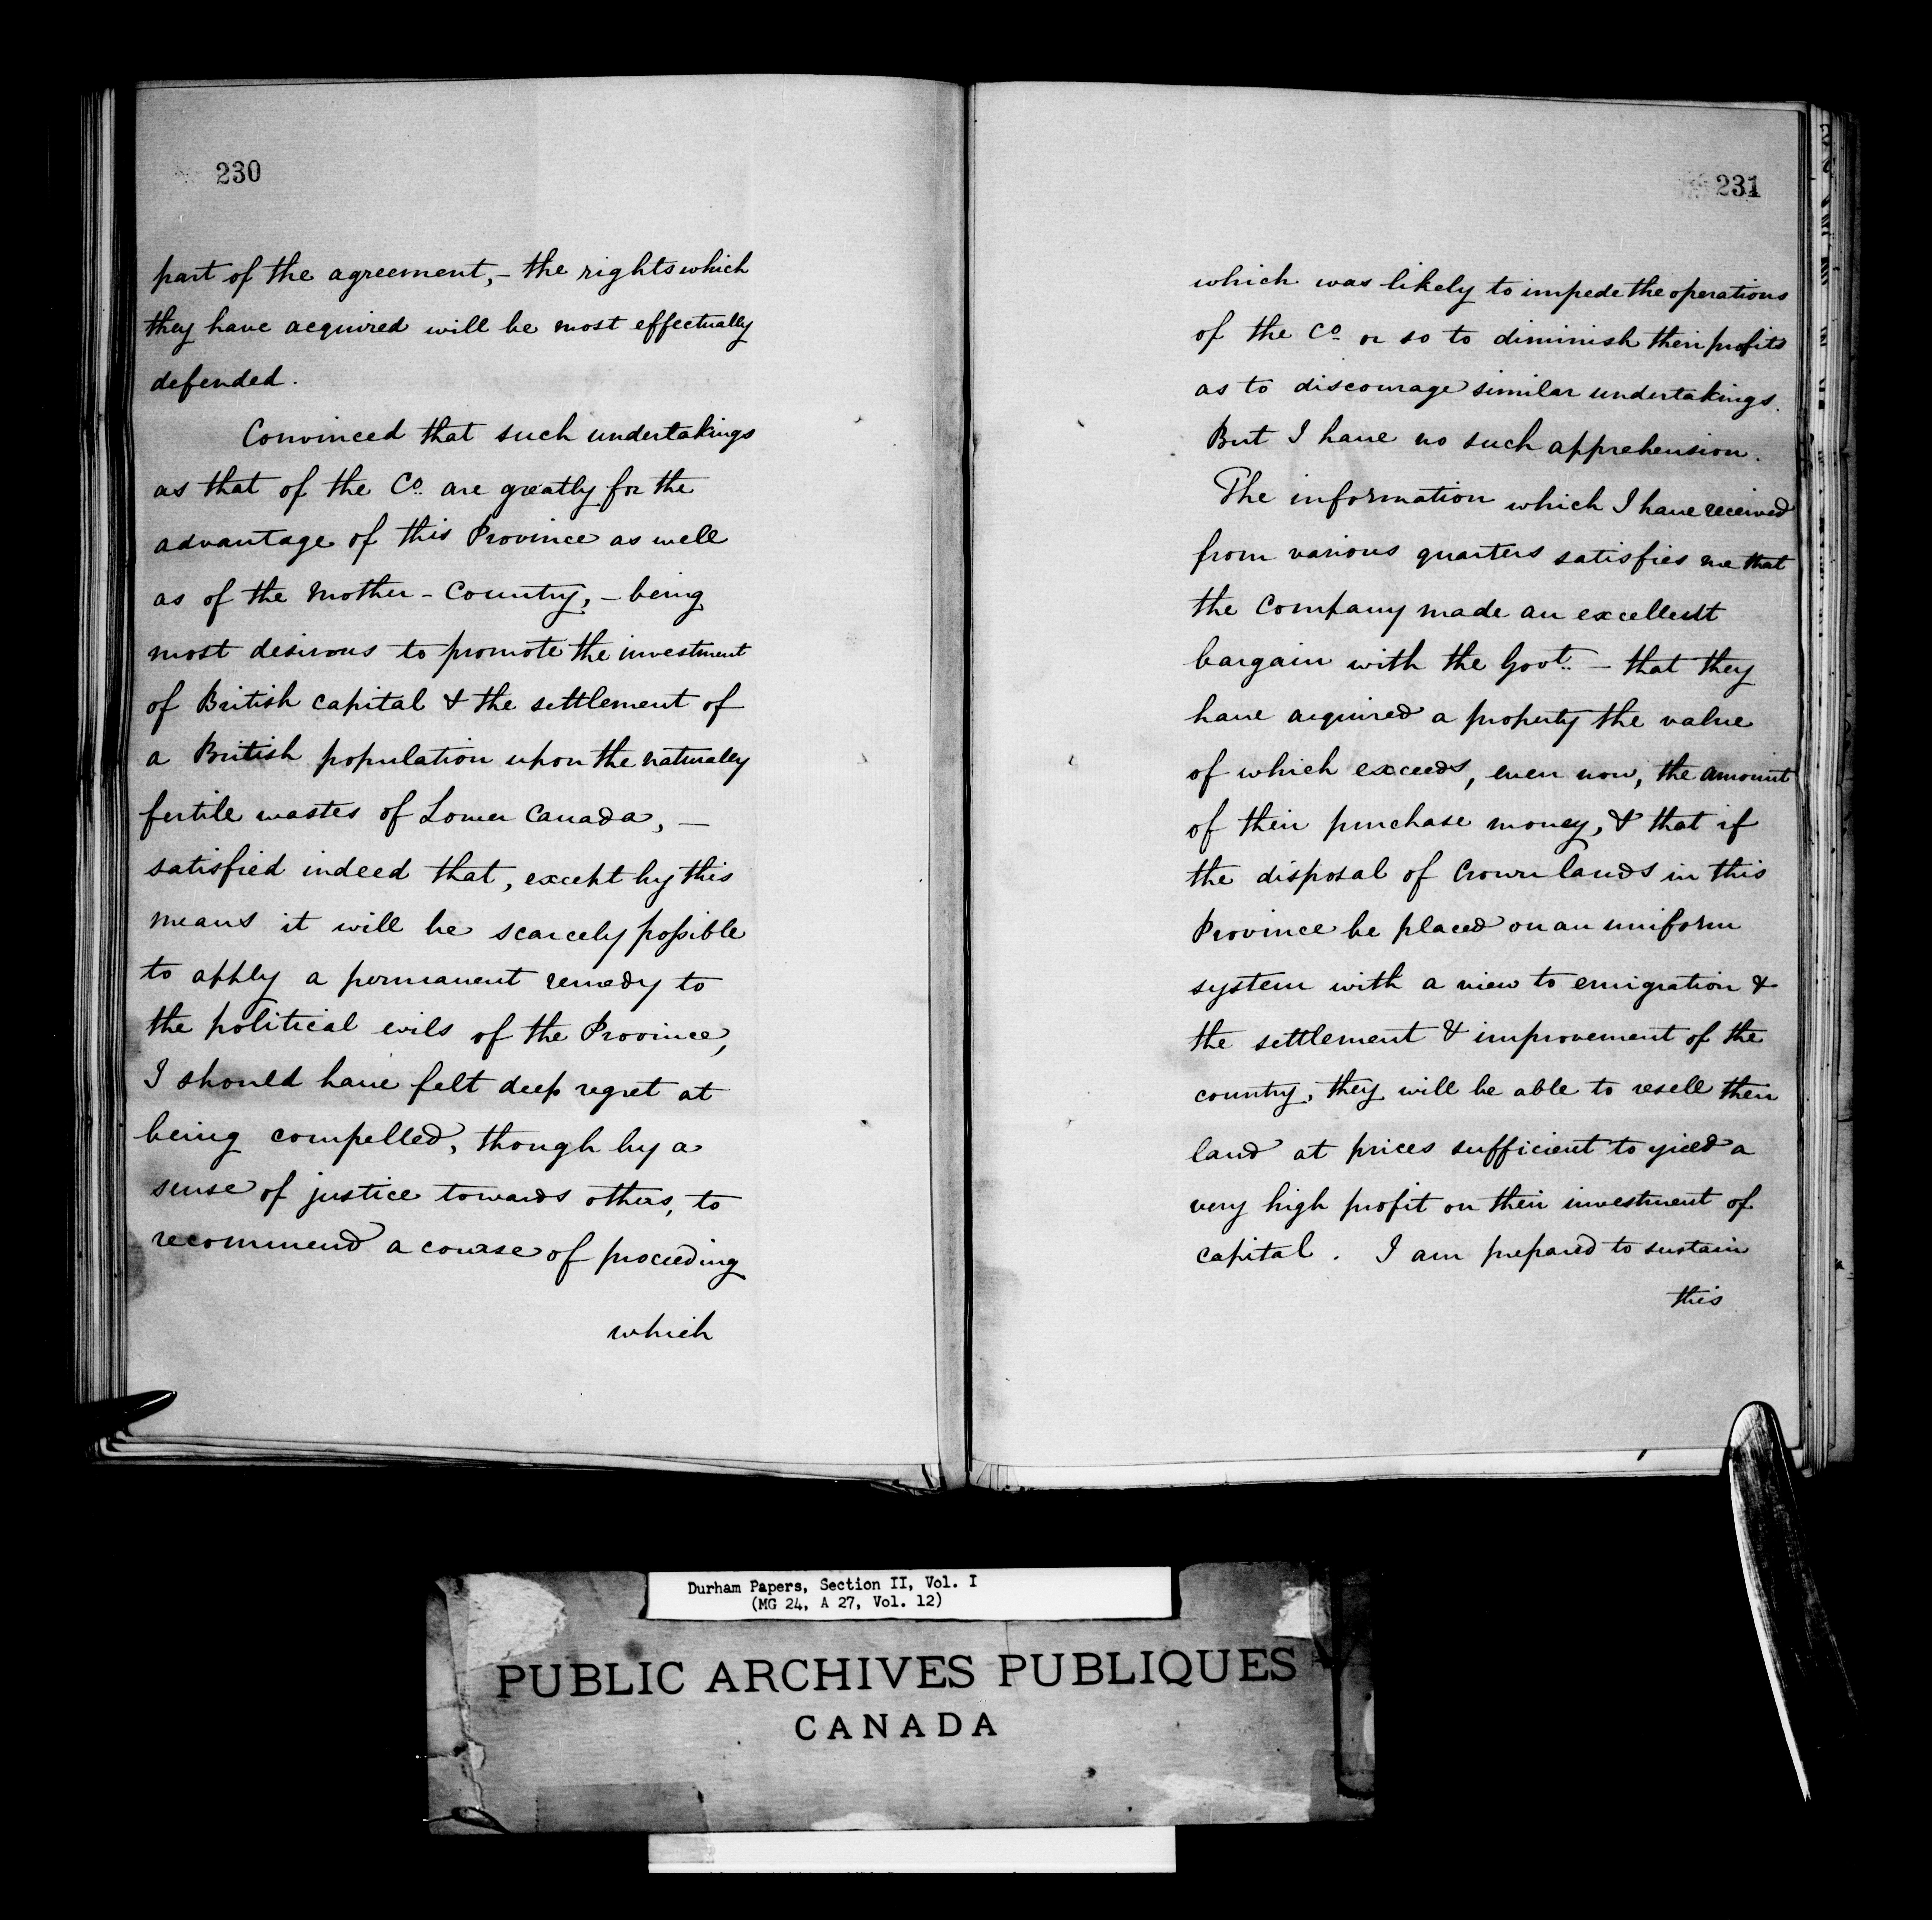 230
part of the agreement, – the rights which
they have acquired will be most effectually
defended.
Convinced that such undertakings
as that of the Co. are greatly for the
advantage of this Province as well
as of the Mother - Country, – being
most desirous to promote the investment
of British capital & the settlement of
a British population upon the naturally
fertile wastes of Lower Canada, –
satisfied indeed that, except by this
means it will be scarcely possible
to apply a permanent remedy to
the political evils of the Province,
I should have felt deep regret at
being compelled, though by a
sense of justice towards others, to
recommend a course of proceeding
which
231
which was likely to impede the operations
of the Co. or so to diminish their profits
as to discourage similar undertakings.
But I have no such apprehension.
The information which I have received
from various quarters satisfies me that
the Company made an excellent
bargain with the Govt. – that they
have acquired a property the value
of which exceeds, even now, the amount
of their purchase money, & that if
the disposal of Crown lands in this
Province be placed on an uniform
system with a view to emigration &
the settlement & improvement of the
country, they will be able to resell their
land at prices sufficient to yield a
very high profit on their investment of
capital. I am prepared to sustain
this
Durham Papers, Section II, Vol. I
(MG 24, A 27, Vol. 12)
PUBLIC ARCHIVES PUBLIQUES
CANADA